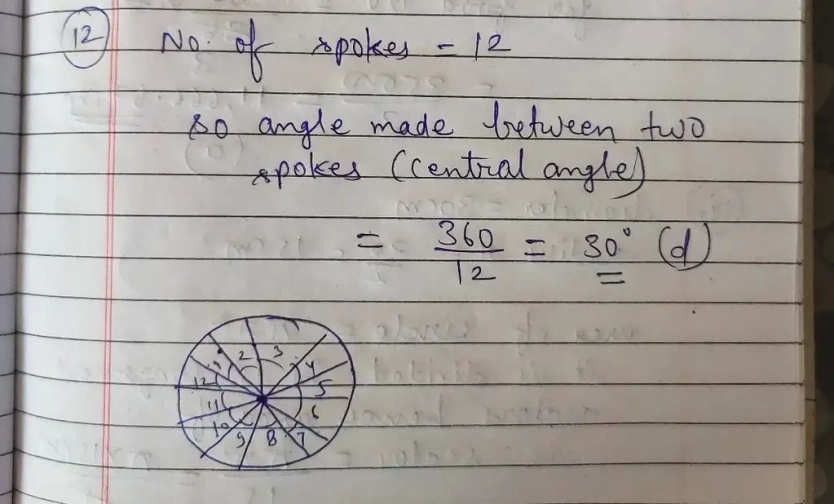 12 No. of spokes - 12
so angle made between two
spokes (central angle)
= 360/12 = 30° (d)
2 3
1 4
12 5
11 6
10 9 8 7